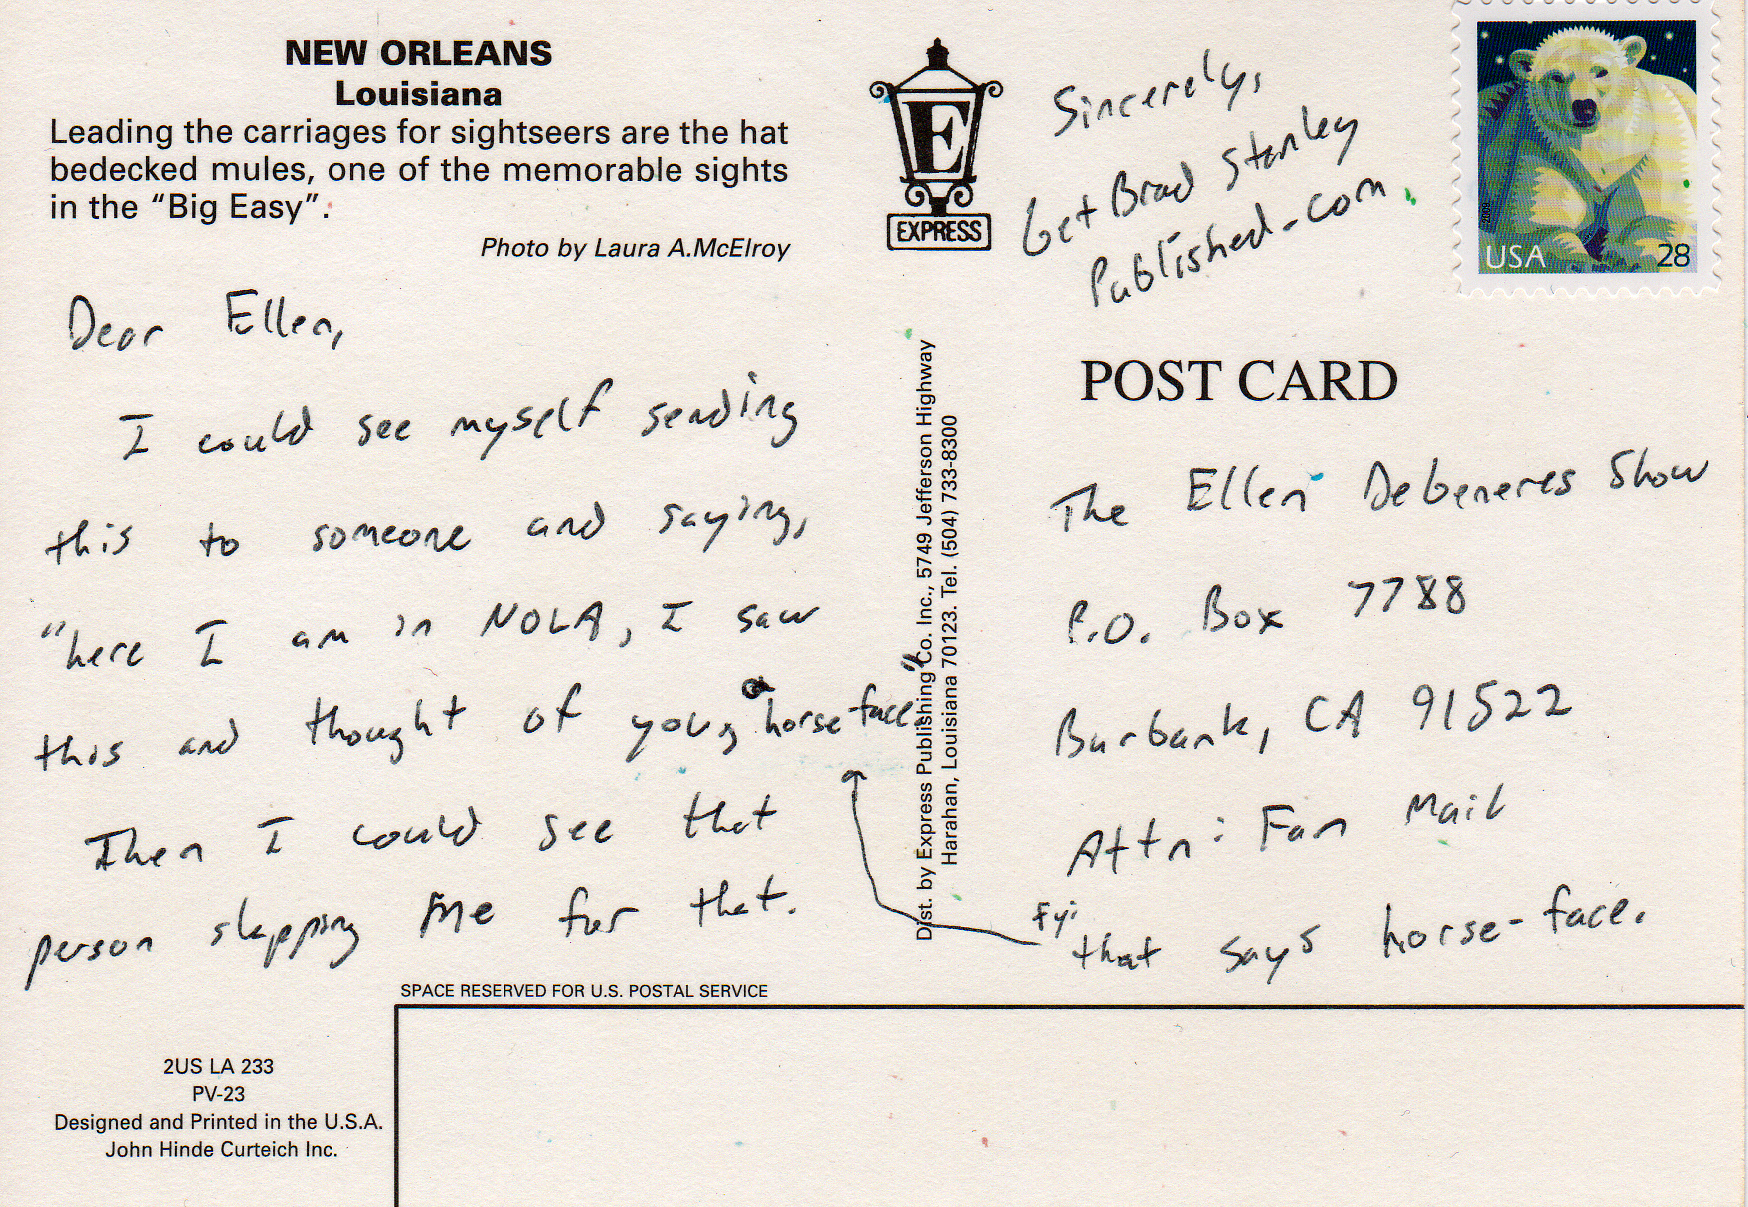 NEW ORLEANS
Louisiana
Leading the carriages for sightseers are the hat
bedecked mules, one of the memorable sights
in the “Big Easy”.
Photo by Laura A.McElroy
Dear Ellen,
I could see myself sending
this to someone and saying,
"here I am in NOLA, I saw
this and thought of you, horse-face."
Then I could see that
person slapping me for that.
SPACE RESERVED FOR U.S. POSTAL SERVICE
2US LA 233
PV-23
Designed and Printed in the U.S.A.
John Hinde Curteich Inc.
E
EXPRESS
Dist. by Express Publishing Co. Inc., 5749 Jefferson Highway
Harahan, Louisiana 70123. Tel. (504) 733-8300
Sincerely,
Get Brad Stanley
Published.com.
USA 28
POST CARD
The Ellen DeGeneres Show
P.O. Box 7788
Burbank, CA 91522
Attn: Fan Mail
Fyi
that says horse-face.